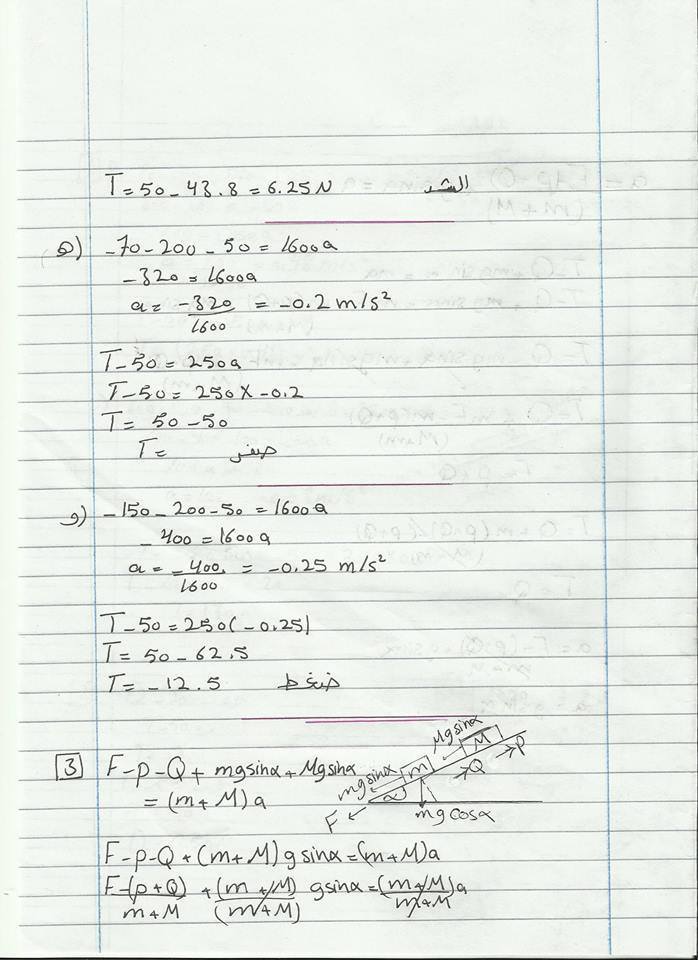 T = 50 - 43.8 = 6.25 N الشد
ه) -70 - 200 - 50 = 1600a
-320 = 1600a
a = -320/1600 = -0.2 m/s²
T - 50 = 250a
T - 50 = 250 × -0.2
T = 50 - 50
T = صفر
و) -150 - 200 - 50 = 1600a
-400 = 1600a
a = -400/1600 = -0.25 m/s²
T - 50 = 250(-0.25)
T = 50 - 62.5
T = -12.5 ضغط
3 F - p - Q + mg sinα + Mg sinα
= (m + M) a
Mg sinα
M
P
mg sinα
m
Q
α
F
mg cosα
F - p - Q + (m + M) g sinα = (m + M) a
F - (p + Q)/m + M + (m + M)/(m + M) g sinα = (m + M)/m + M a